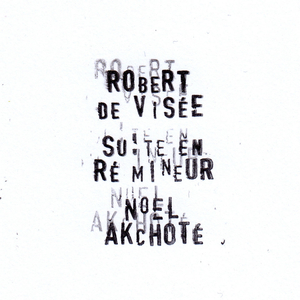 ROBERT
DE VISÉE
SUITE EN
RÉ MINEUR
NOËL
AKCHOTÉ